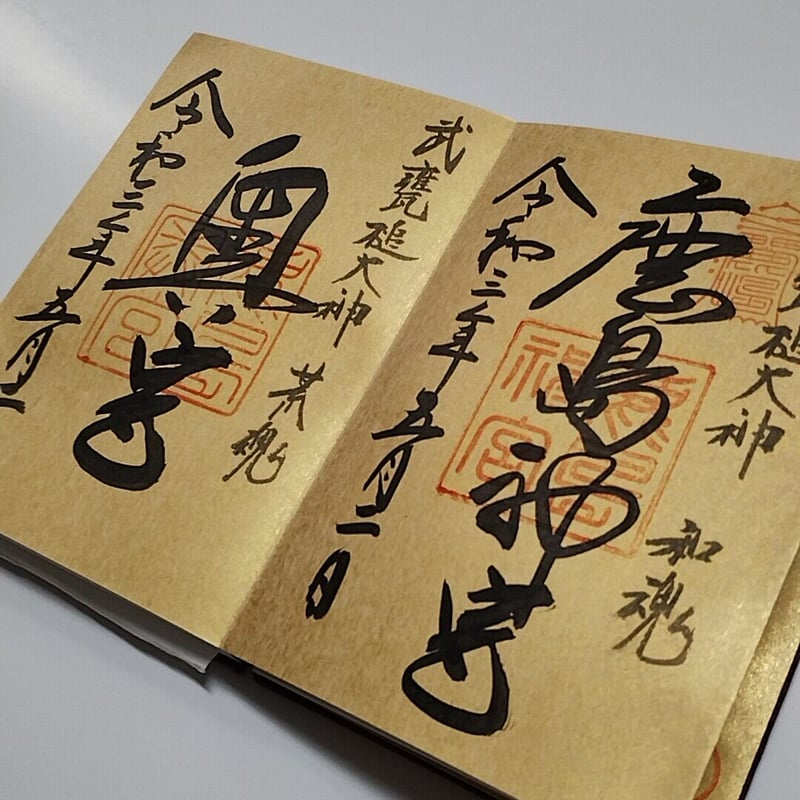 槌大神 和魂
鹿島神宮
鹿島神宮
令和三年五月二日
武甕槌大神 荒魂
奥宮
鹿島神宮
令和三年五月二